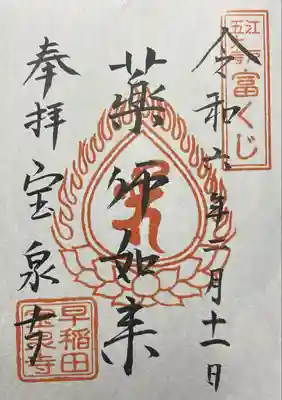 江戸
五大寺
富くじ
令和六年二月十一日
薬师如来
奉拝
宝泉寺
早稲田
宝泉寺